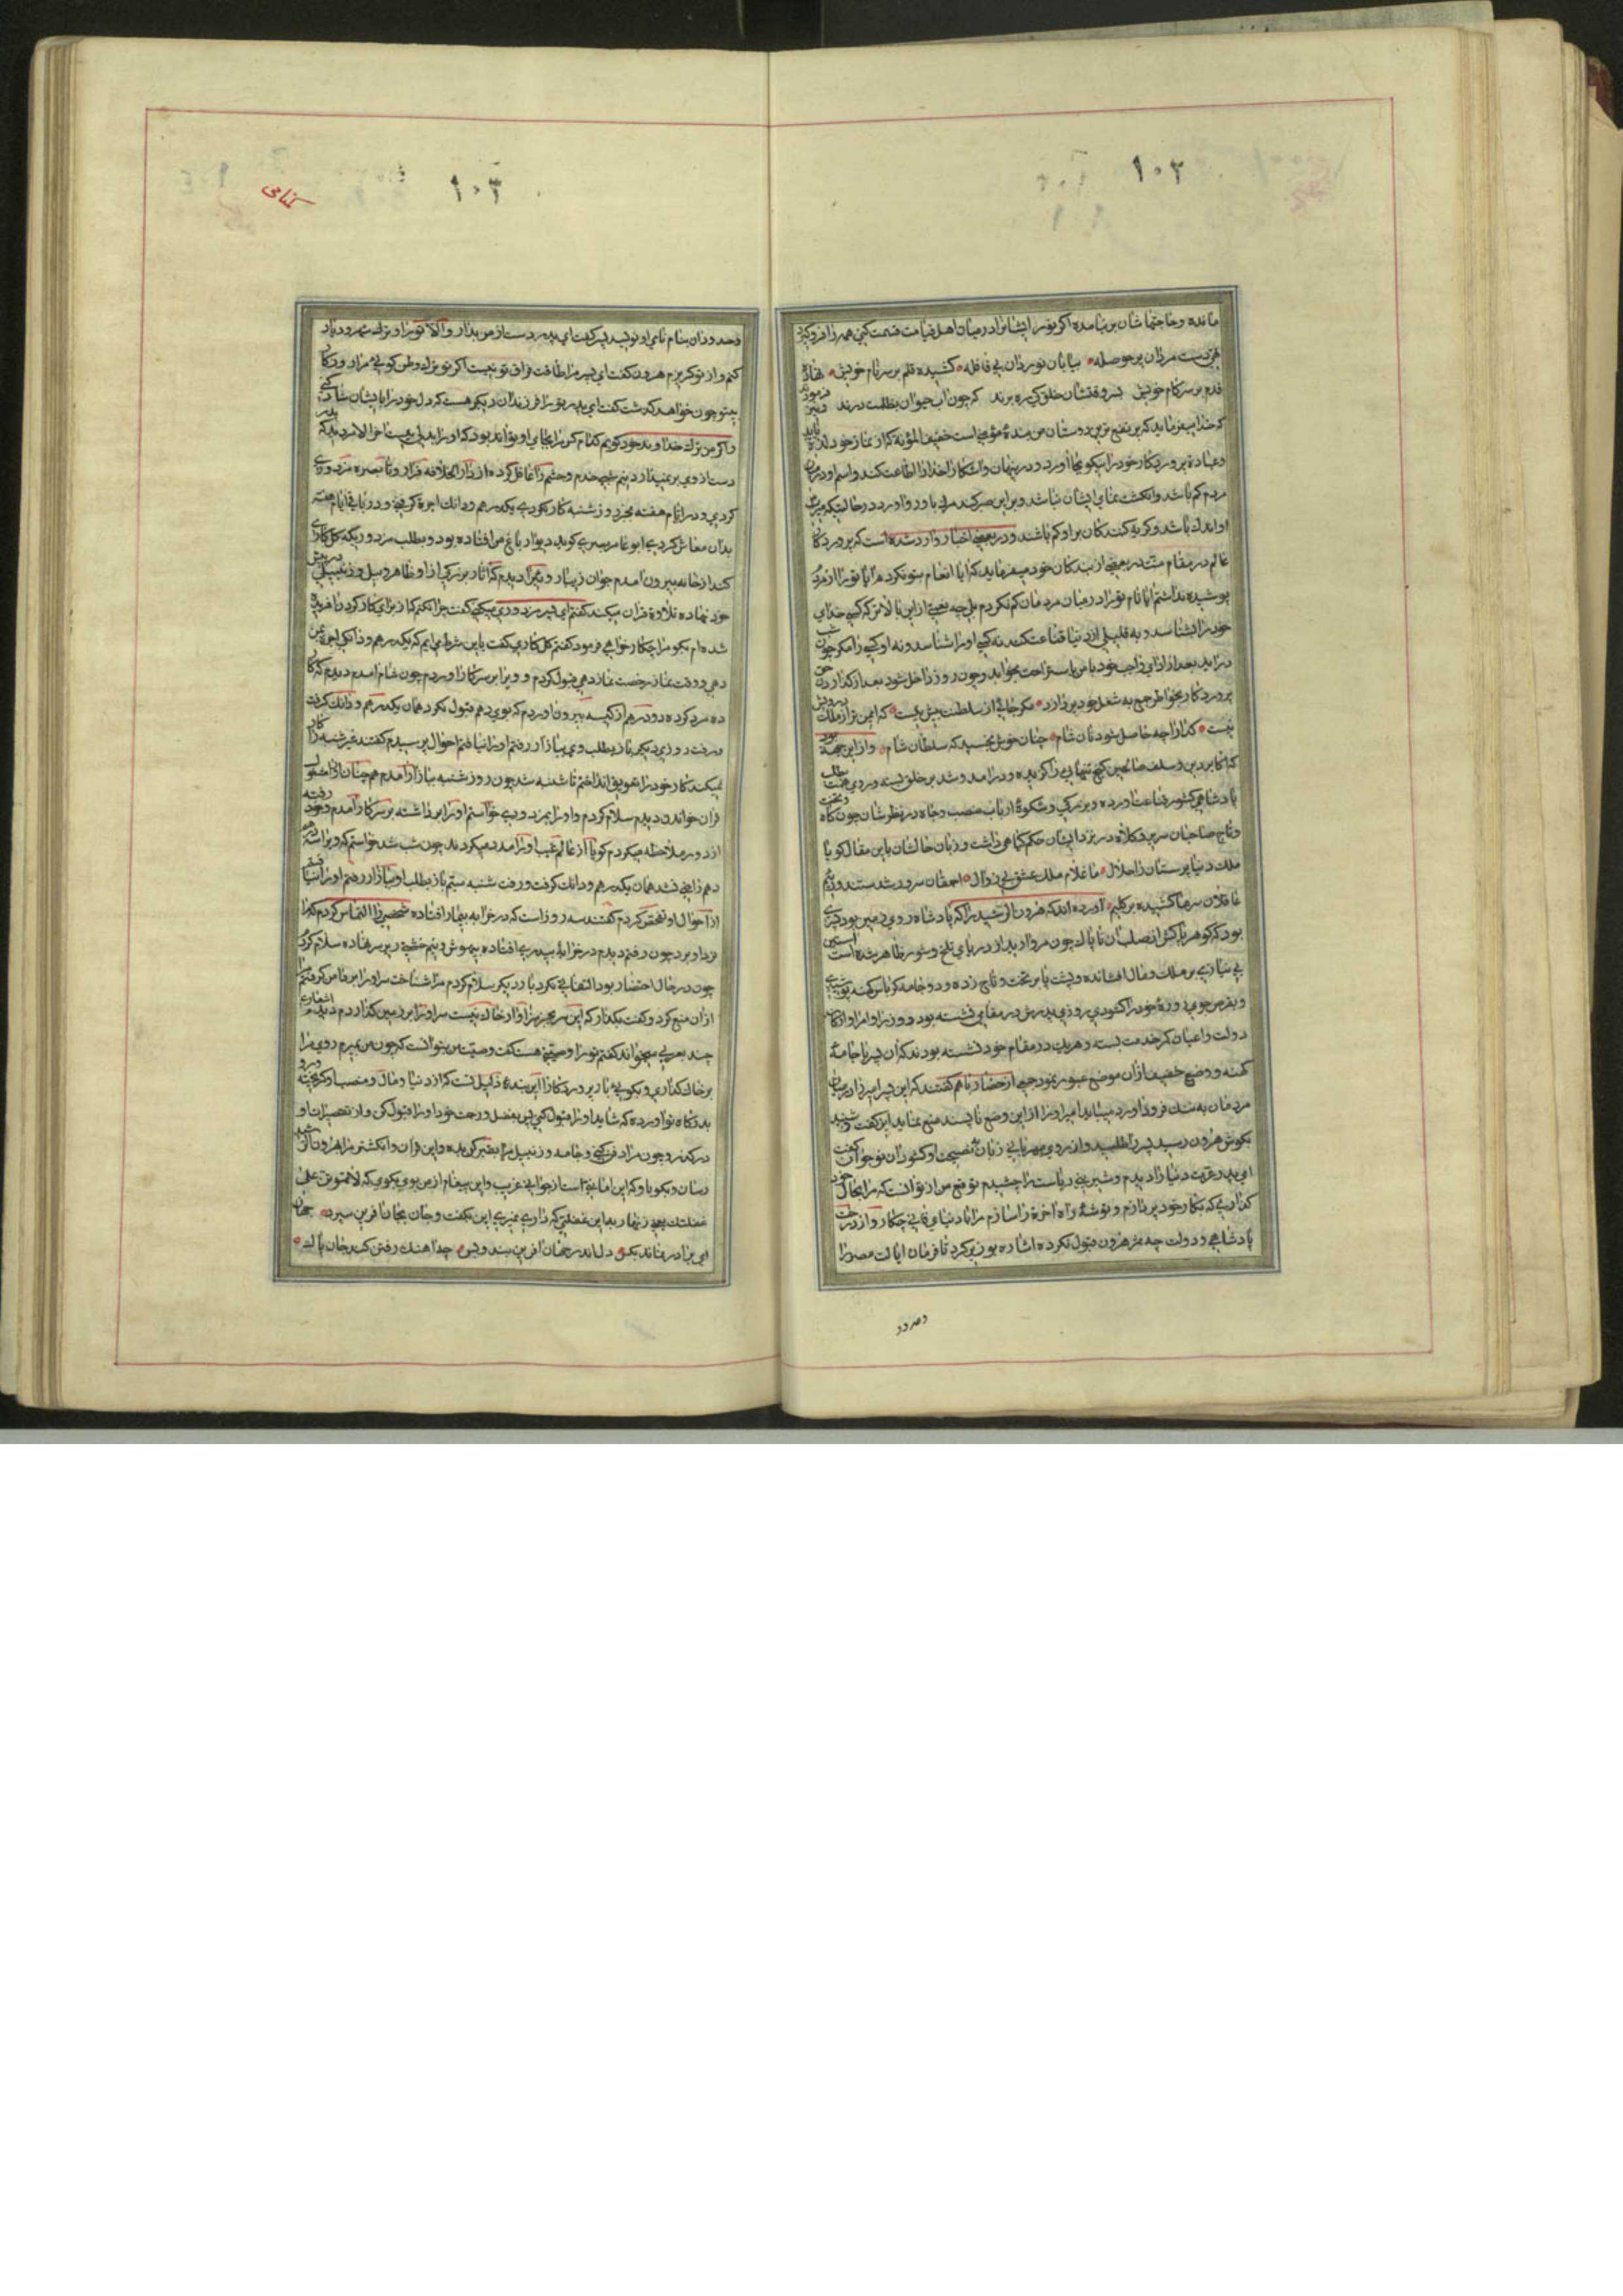 ١٠٣
مانده و حاجتها شان بر نیامده اگر نور ایشانرا در میان اهل قیامت قسمت کنی همه را فرو کیرد
تهی دست مردان پر حوصله بیابان نوردان بی قافله کشیده قلم بر سر نام خویش نهاده
قدم بر سر کام خویش بسر وقتشان خلق کی ره برند که چون آب حیوان بظلمت درند
که خدا میفرماید که
دوستان من بندهٔ مؤمنی است خفیف المؤنة که از نماز خود
و عبادة پروردکار خود را نیکو بجا آورد و در پنهان و آشکارا خدا را اطاعت کند و اسم او در میان
مردم کم باشد و انکشت نمای ایشان نباشد و بر این صبر کند
او اندک باشد و کریه کنندکان بر او کم باشند و در بعضی اخبار وارد شده است که پروردکار
عالم در مقام منت در بعضی از بندکان خود میفرماید که آیا انعام بتو نکردم آیا تو را از مردم
پوشیده نداشتم آیا نام تو را در میان مردمان کم نکردم بلی چه نعمتی از این بالاتر که کسی خدای
خود را بشناسد و به قلیلی از دنیا قناعت کند نه کسی او را شناسد و نه او کسی را مکر چون شب
در آید بعد از ادای واجب خود با من باستراحت بخوابد و چون روز داخل شود بعد از کذاردن حق
پروردکار بخواطر جمع به شغل خود پردازد مکو جاهی از سلطنت بیش نیست که ایمن تر از ملک درویش
نیست کدا را چه حاصل شود نان شام چنان خوش بخسبد که سلطان شام و از این جهة بود
که اکابر دین و سلف صالحین کنج تنهایی را کزیده و در آمد و شد بر خلق بسته و روی همت بجانب
پادشاهی کشور قناعت آورده و بزرکی و شکوهٔ ارباب منصب و جاه در نظرشان چون کاه
و تاج صاحبان سریر و کلاه در نزد ایشان حکم کیاهی داشت و زبان حالشان باین مقال کویا
ملک دنیا پرستان را حلال ما غلام ملک عشق بی زوال احمقان سرور شدستند و ز بیم
عاقلان سرها کشیده بر کلیم آورده اند که هرون الرشید را که پادشاه روی زمین بود پسری
بود که کوهر پاکش از صلب آن ناپاک چون مروارید از دریای تلخ و شور ظاهر شده است آستین
بی نیازی بر ملک و مال افشانده و پشت پا بر تخت و تاج زده و دو جامه کرباس کهنه پوشیدی
و بقرص جوی روزهٔ خود را کشودی روزی پدرش در مقامی نشسته بود و وزرا و امرا و ارکان
دولت و اعیان کمر خدمت بسته و هر یک در مقام خود نشسته بودند که آن پسر با جامهٔ
کهنه و وضع خفیف از آن موضع عبور نمود جمعی از حضار با هم کفتند که این پسر امیر را در میان
مردمان به ننک فرود آورد میباید امیر او را از این وضع ناپسند منع نماید این کفت و شنید
بکوش هرون رسید پسر را طلبید و از روی مهربانی زبان نصیحت او کشود آن نوجوان کفت
ای پدر عزت دنیا را دیدم و شیرینی ریاست را چشیدم توقع من از تو آنست که مرا بحال خود
کذاری که بکار خود پردازم و توشهٔ راه آخرة را سازم مرا با دنیای فانی چکار و از درخت
پادشاهی و دولت چه ثمر هرون قبول نکرده اشاره بوزیر کرد تا فرمان ایالت مصر را
١٠٣
و حدود آن بنام نامی او نویسد پسر کفت ای پدر دست از من بدار و الا تو را و ترک شهر و دیار
کنم و از تو کریزم هرون کفت ای پسر مرا طاقت فراق تو نیست اکر تو ترک وطن کویی مرا
بیتو چون خواهد کذشت کفت ای پدر تو را فرزندان دیکر هست که دل خود را بایشان شاد کنی
و اکر من ترک خداوند خود کویم کدام کس مرا بجای او تواند بود که او را بدلی نیست آخر الامر دید که پدر
دست از وی بر نمیدارد نیم شبی خدم و حشم را غافل کرده از دار الخلافه فرار و تا بصره
کردی و در ایام هفته بجز روز شنبه کار نکردی یکدرهم و دانک اجرة کرفتی و در باقی ایام هفته
بدان معاش کردی ابو عامر بصری کوید دیوار باغ من افتاده بود و بطلب مزدوری که کل کاری
کند از خانه بیرون آمدم جوان زیبا رویی را دیدم که آثار بزرکی از او ظاهر و بیل و زنبیلی در پیش
خود نهاده تلاوة قران میکند کفتم ای پسر مزدوری میکنی کفت چرا نکنم که از برای کار کردن آفریده
شده ام بکو مرا چکار خواهی فرمود کفتم کل کاری کفت باین شرط می آیم که یکدرهم و دانکی اجرة بمن
دهی و وقت نماز رخصت نماز دهی قبول کردم و ویرا بر سر کار آوردم چون شام آمدم دیدم که کار
ده مرد کرده دو درهم از کیسه بیرون آوردم که بوی دهم قبول نکرد همان یکدرهم و دانک کرفت
و رفت روز دیکر باز بطلب وی ببازار رفتم او را نیافتم احوال پرسیدم کفتند غیر شنبه کار
نمیکند کار خود را بتعویق انداختم تا شنبه شد چون روز شنبه ببازار آمدم همچنان او را مشغول
قران خواندن دیدم سلام کردم و او را بمزدوری خواستم او را برداشته بر سر کار آمدم و خود رفته
از دور ملاحظه میکردم کویا از عالم غیب او را مدد میکردند چون شب شد خواستم که ویرا سه درهم
دهم راضی نشد همان یکدرهم و دانک کرفت و رفت شنبه سیم باز بطلب او ببازار رفتم او را نیافتم
از احوال او تفحص کردم کفتند سه روز است که در خرابه بیمار افتاده شخصی را التماس کردم که مرا
نزد او برد چون رفتم دیدم در خرابهٔ بی در افتاده بیهوش و نیم خشتی در زیر سر نهاده سلام کردم
چون در حال احتضار بود التفاتی نکرد بار دیکر سلام کردم مرا شناخت سر او را بر دامن کرفتم
از آن منع کرد و کفت بکذار که این سر بجز سزاوار خاک نیست سر او را بر زمین کذاردم دیدم اشعاری
چند بعربی میخواند کفتم تو را وصیتی هست کفت وصیت من بتو آنست که چون من بمیرم روی مرا
بر خاک کذاری و بکویی بار پروردکارا این بندهٔ ذلیل تست که از دنیا و مال و منصب او کریخته و رو
بدرکاه تو آورده که شاید او را قبول کنی پس بفضل و رحمت خود او را قبول کن و از تقصیرات او
درکذر و چون مرا دفن کنی جامه و زنبیل مرا بقبر کن بده و این قران و انکشتر مرا بهرون الرشید
رسان و بکو باو که این امانتی است از جوانی غریب و این پیغام از من بوی بکوی که لا تموتن علی
غفلتک یعنی زنهار باین غفلتی که داری نمیری این بکفت و جان بجان آفرین سپرد جهان
ای برادر نماند بکس دل اندر جهان آفرین بند و بس چو آهنک رفتن کند جان پاک